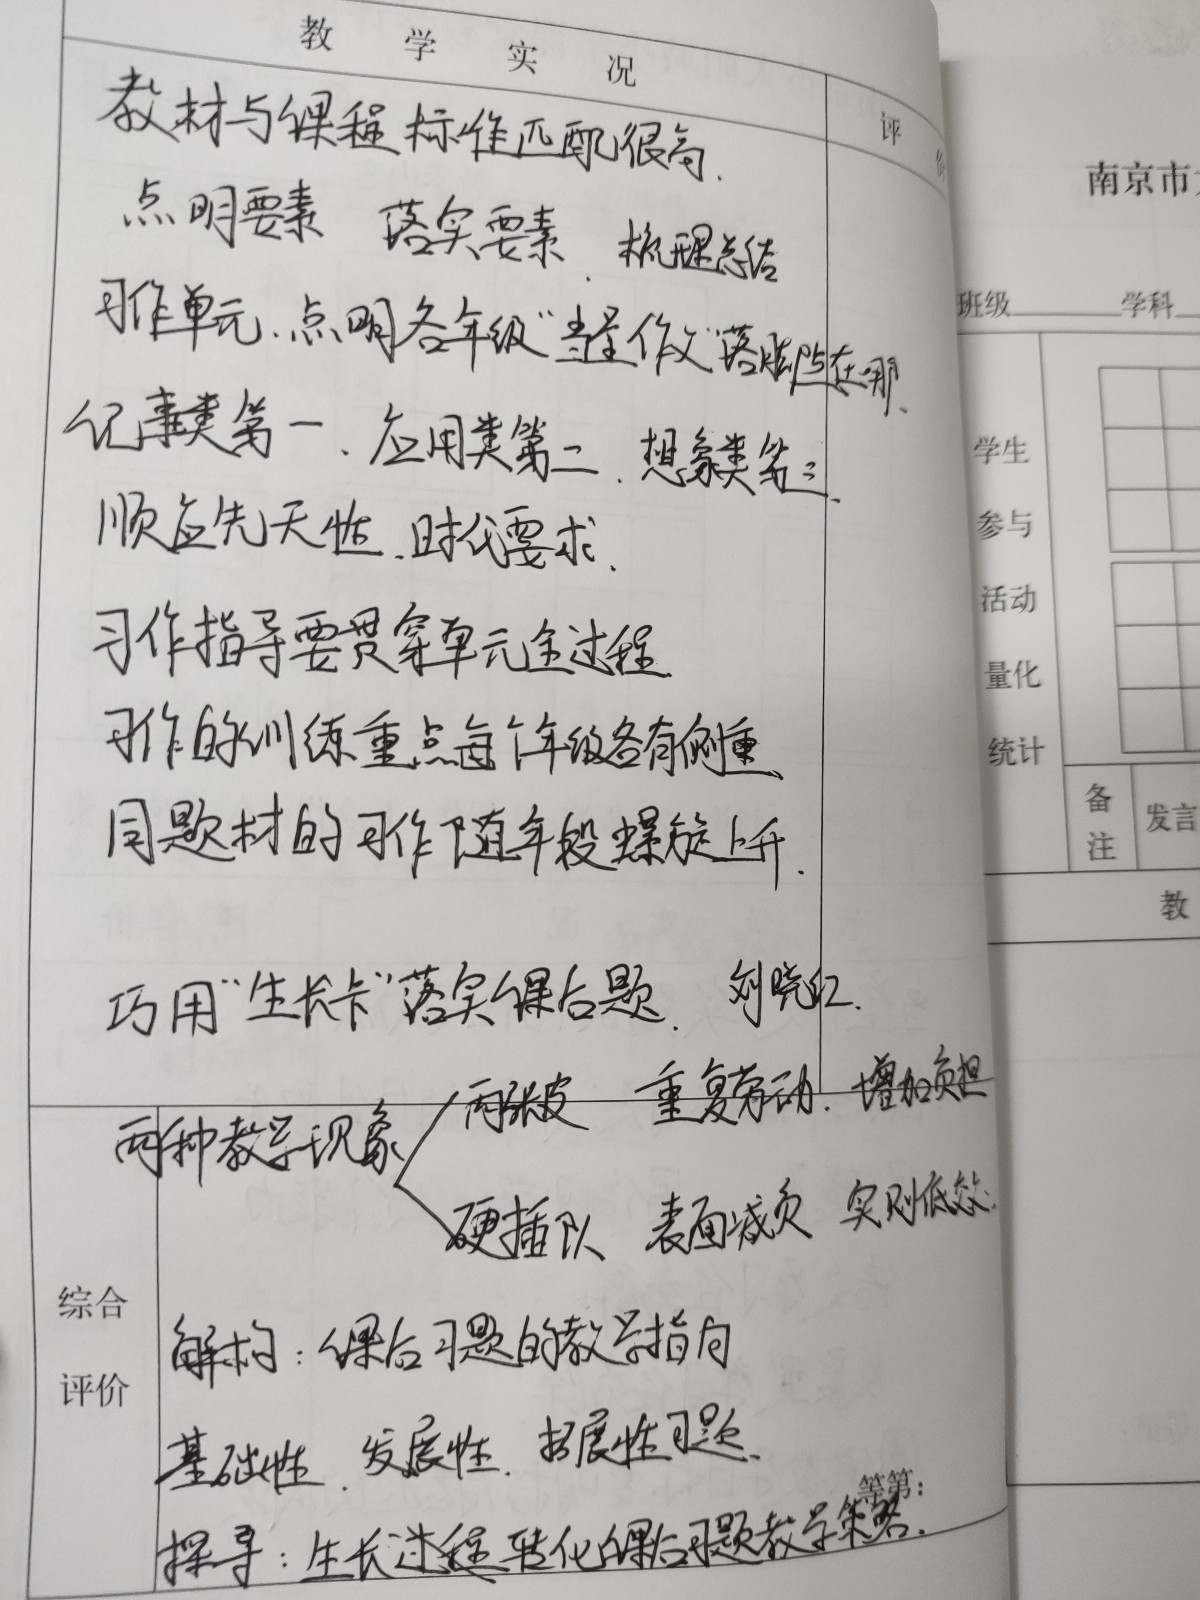 教 学 实 况
评 价
教材与课程标准匹配很高.
点明要素 落实要素. 梳理总结
习作单元、点明各年级“当量作文”落脚点在哪.
记事类第一、应用类第二、想象类第三.
顺应先天性、时代要求.
习作指导要贯穿单元全过程
习作的训练重点每个年级各有侧重
同题材的习作随年段螺旋上升.
巧用“生长卡”落实课后题. 刘晓红.
两种教学现象
两张皮 重复劳动. 增加负担
硬插队 表面减负 实则低效.
综合
评价
解构：课后习题的教学指向
基础性、发展性、拓展性习题.
等第：
探寻：生长过程转化课后习题教学策略.
南京市
班级 学科
学生
参与
活动
量化
统计
备
注
发言
教